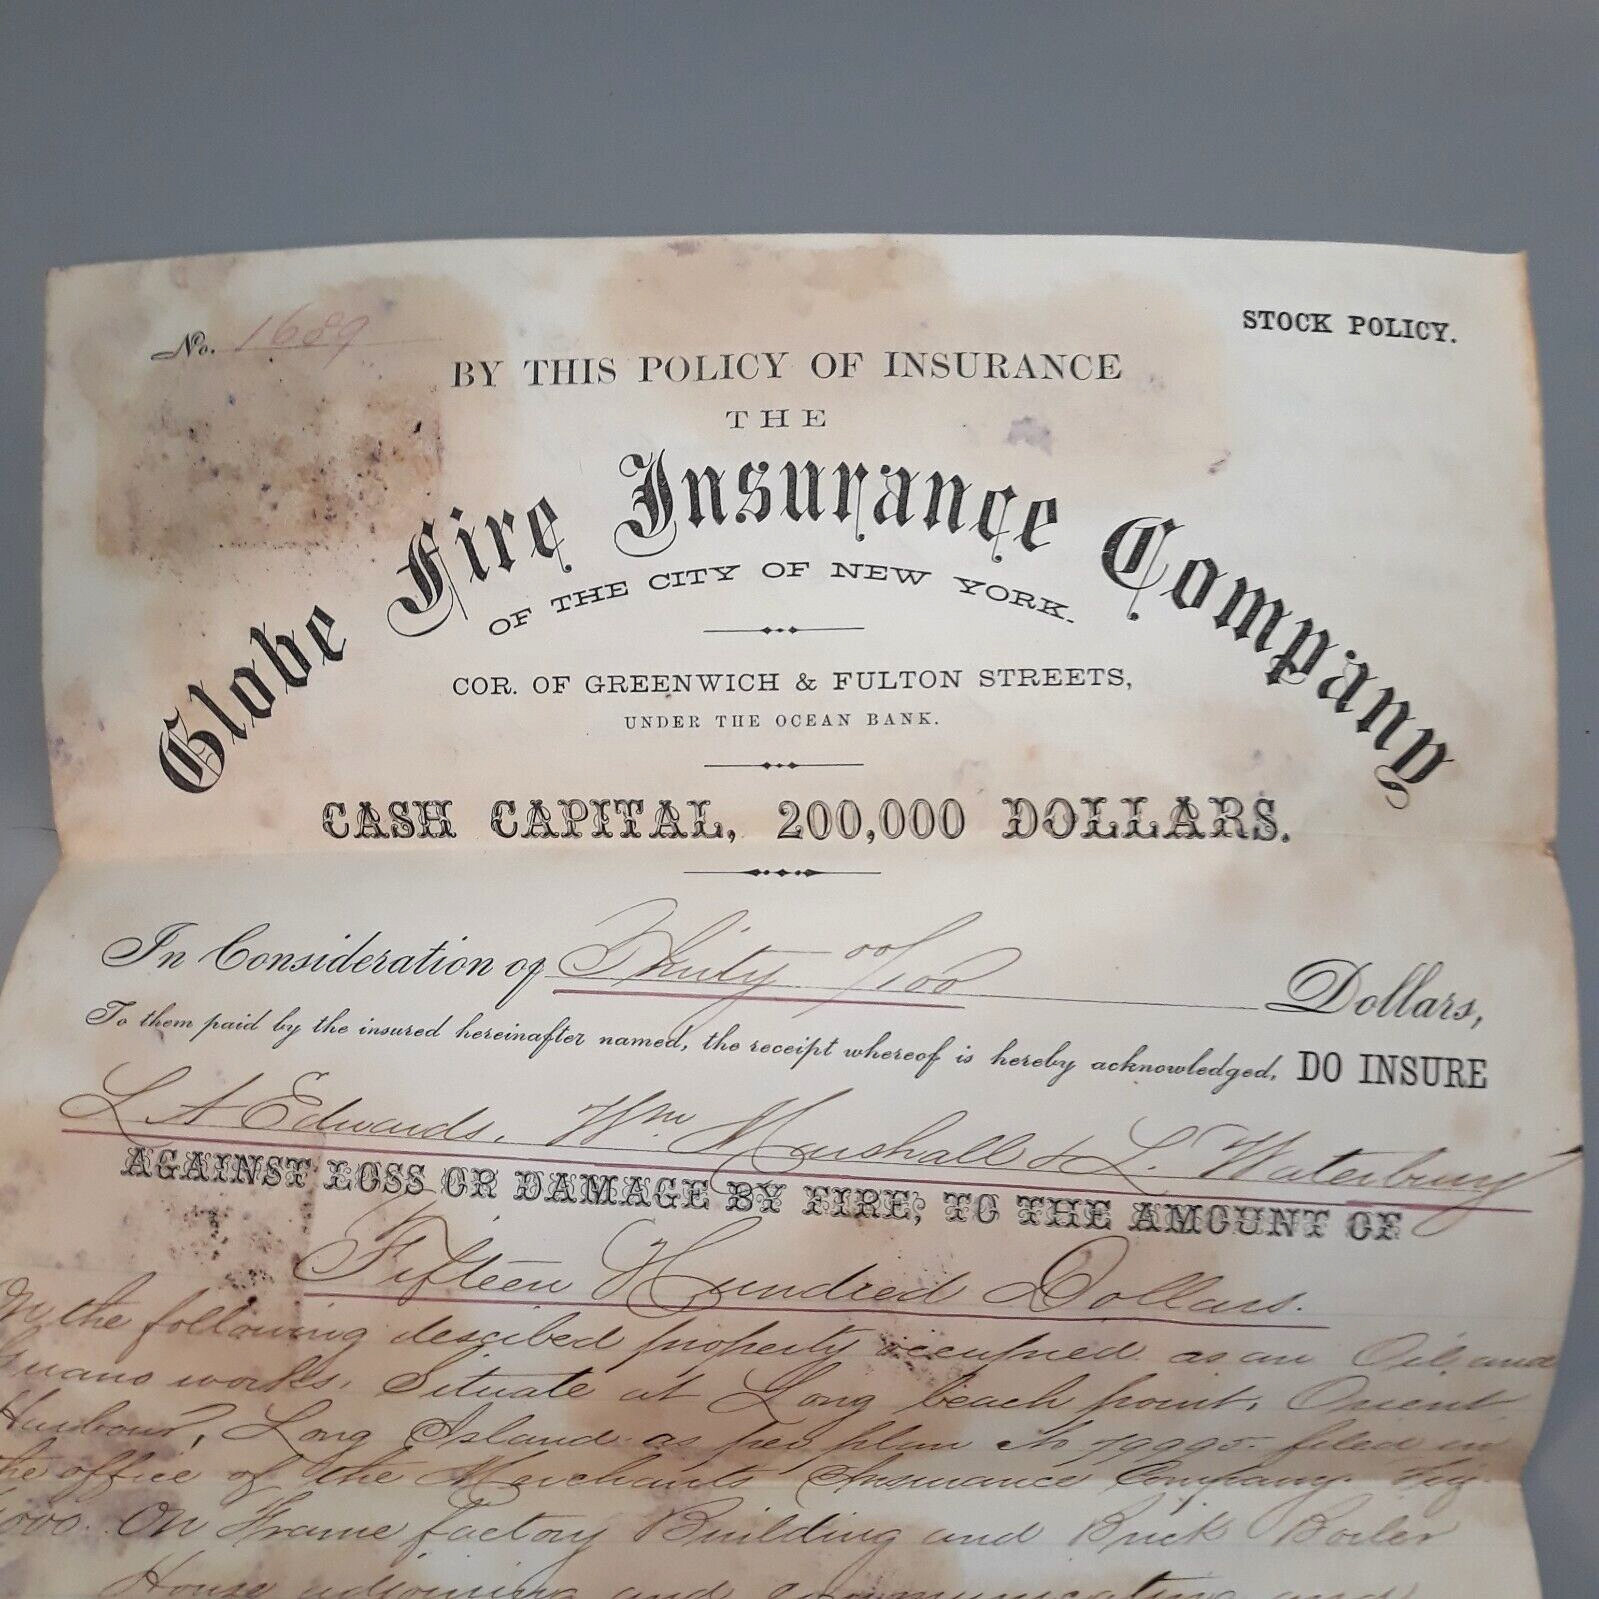 No. 1689
STOCK POLICY.
BY THIS POLICY OF INSURANCE
THE
Globe Fire Insurance Company
OF THE CITY OF NEW YORK.
COR. OF GREENWICH & FULTON STREETS,
UNDER THE OCEAN BANK.
CASH CAPITAL, 200,000 DOLLARS.
In Consideration of Thirty 00/100 Dollars,
To them paid by the insured hereinafter named, the receipt whereof is hereby acknowledged, DO INSURE
L A Edwards, Wm Marshall & L. Waterbury
AGAINST LOSS OR DAMAGE BY FIRE, TO THE AMOUNT OF
Fifteen Hundred Dollars.
On the following described property occupied as an Oil and
Guano works, Situate at Long beach point, Orient
Harbour, Long Island as per plan filed in
the office of the Merchants Insurance Company. Viz.
On Frame factory Building and Brick Boiler
House adjoining and communicating and